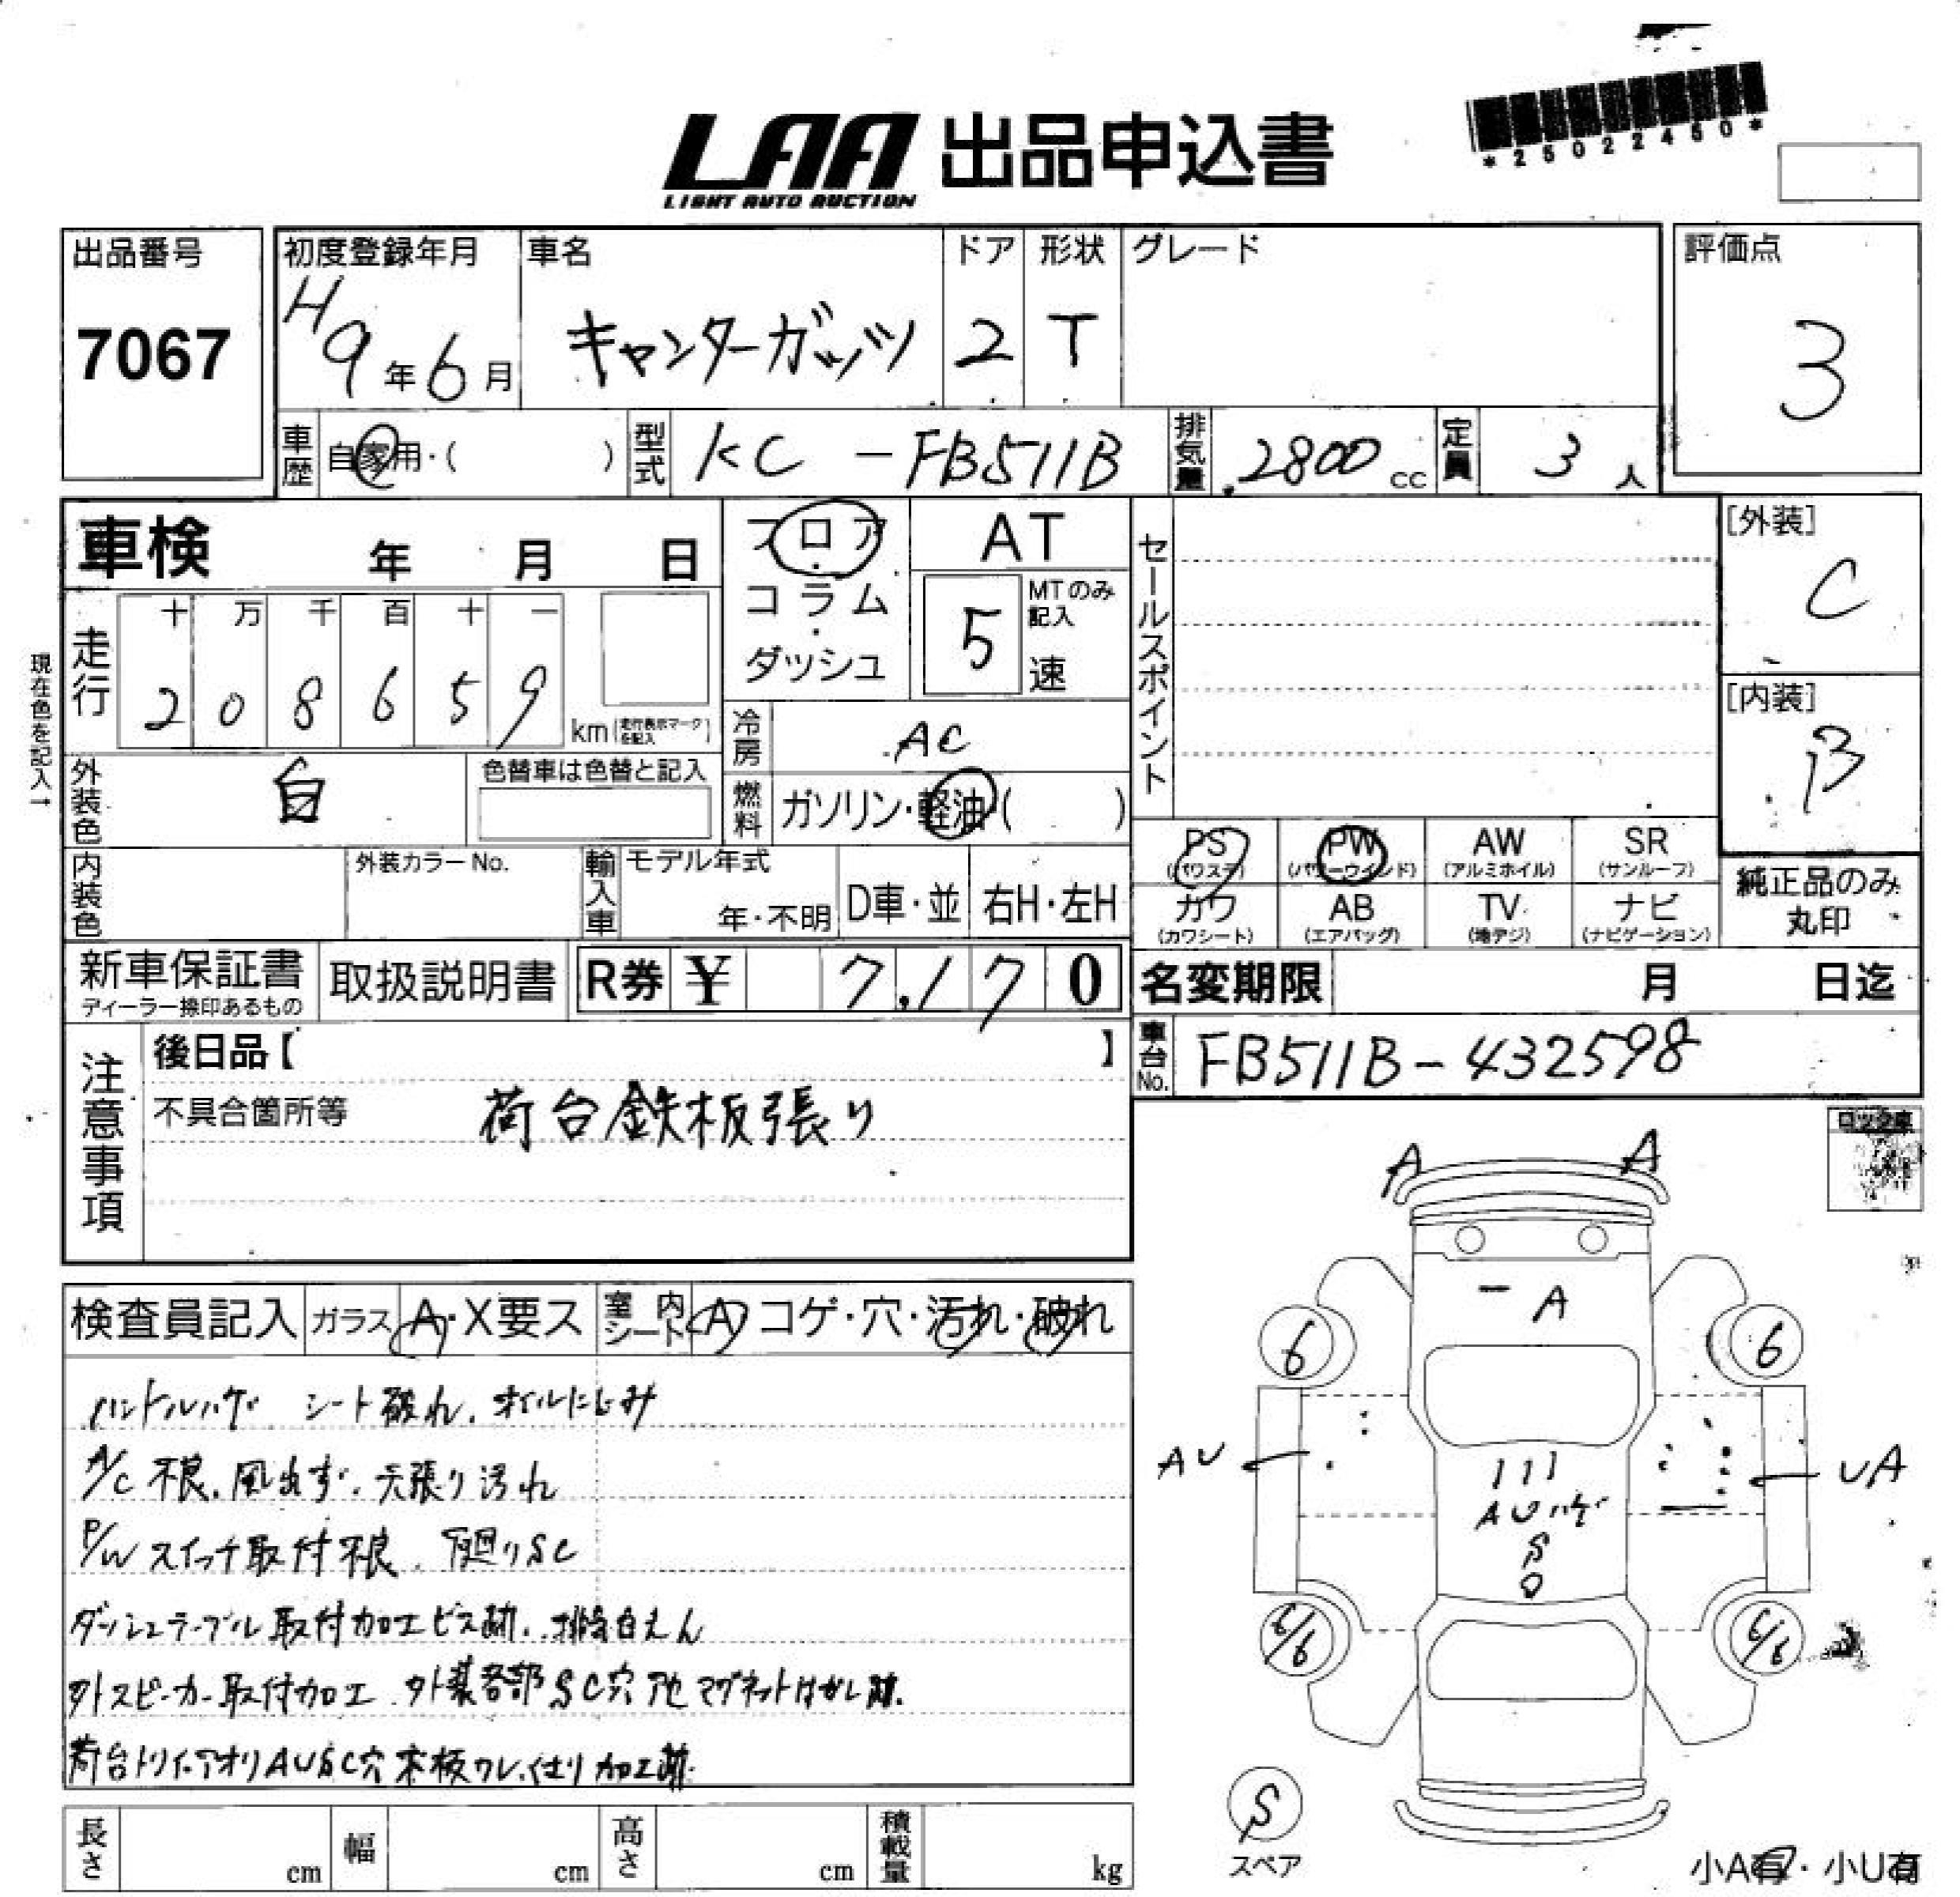 *25022450*
LAA 出品申込書
LIGHT AUTO AUCTION
出品番号 初度登録年月 車名 ドア 形状 グレード 評価点
7067 H9年6月 キャンターガッツ 2 T 3
車歴 自家用・( ) 型式 KC-FB511B 排気量 2800 cc 定員 3 人
車検 年 月 日 フロア・コラム・ダッシュ AT
5 MTのみ記入 速
セールスポイント
[外装]
C
[内装]
B
現在色を記入→
走行 十 万 千 百 十 一
2 0 8 6 5 9 km (走行表示マークを記入)
冷房 AC
外装色 白 色替車は色替と記入
燃料 ガソリン・軽油・( )
PS PW AW SR
(パワステ) (パワーウインド) (アルミホイル) (サンルーフ)
カワ AB TV ナビ
(カワシート) (エアバッグ) (地デジ) (ナビゲーション)
純正品のみ
丸印
内装色 外装カラーNo. 輸入車 モデル年式 年・不明 D車・並 右H・左H
新車保証書 取扱説明書 R券 ¥ 7,170
ディーラー捺印あるもの
名変期限 月 日迄
車台No. FB511B-432598
注意事項
後日品【 】
不具合箇所等 荷台鉄板張り
ロック車
検査員記入 ガラス A・X要ス 室内シート A コゲ・穴・汚れ・破れ
ハンドルハゲ シート破れ、オイルにじみ
A/C 不良、風出ず、天張り汚れ
P/W スイッチ取付不良、下廻りSC
ダッシュテーブル取付加工ビス跡、排気白えん
外スピーカー取付加工、外装各部SC穴 マグネットはがし跡、
荷台トリイ、アオリAUSC穴 木板ワレ、加工跡
A A
A
6 6
AU UA
AUハゲ
S
6/6 6/6
S
スペア
長さ cm 幅 cm 高さ cm 積載量 kg
小A有・小U有